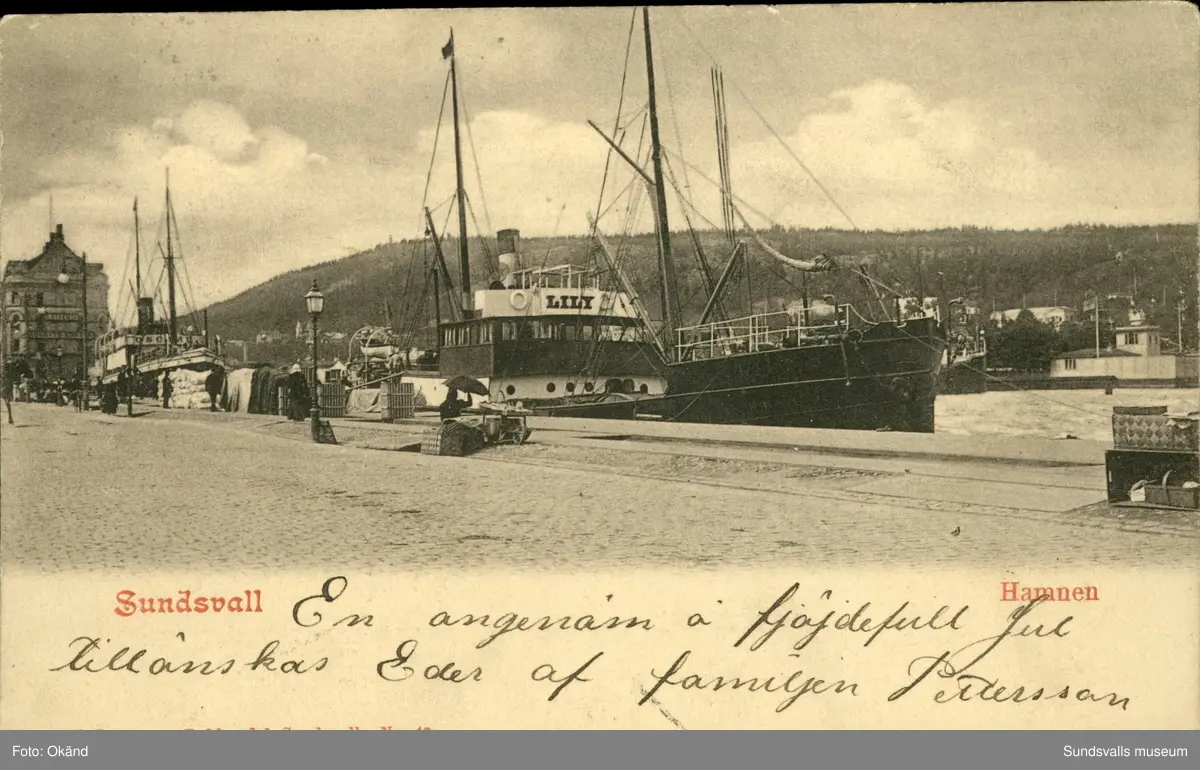 LILY
Sundsvall
Hamnen
En angenäm å fjöjdefull Jul
tillönskas Eder af familjen Pettersson
Foto: Okänd
Sundsvalls museum